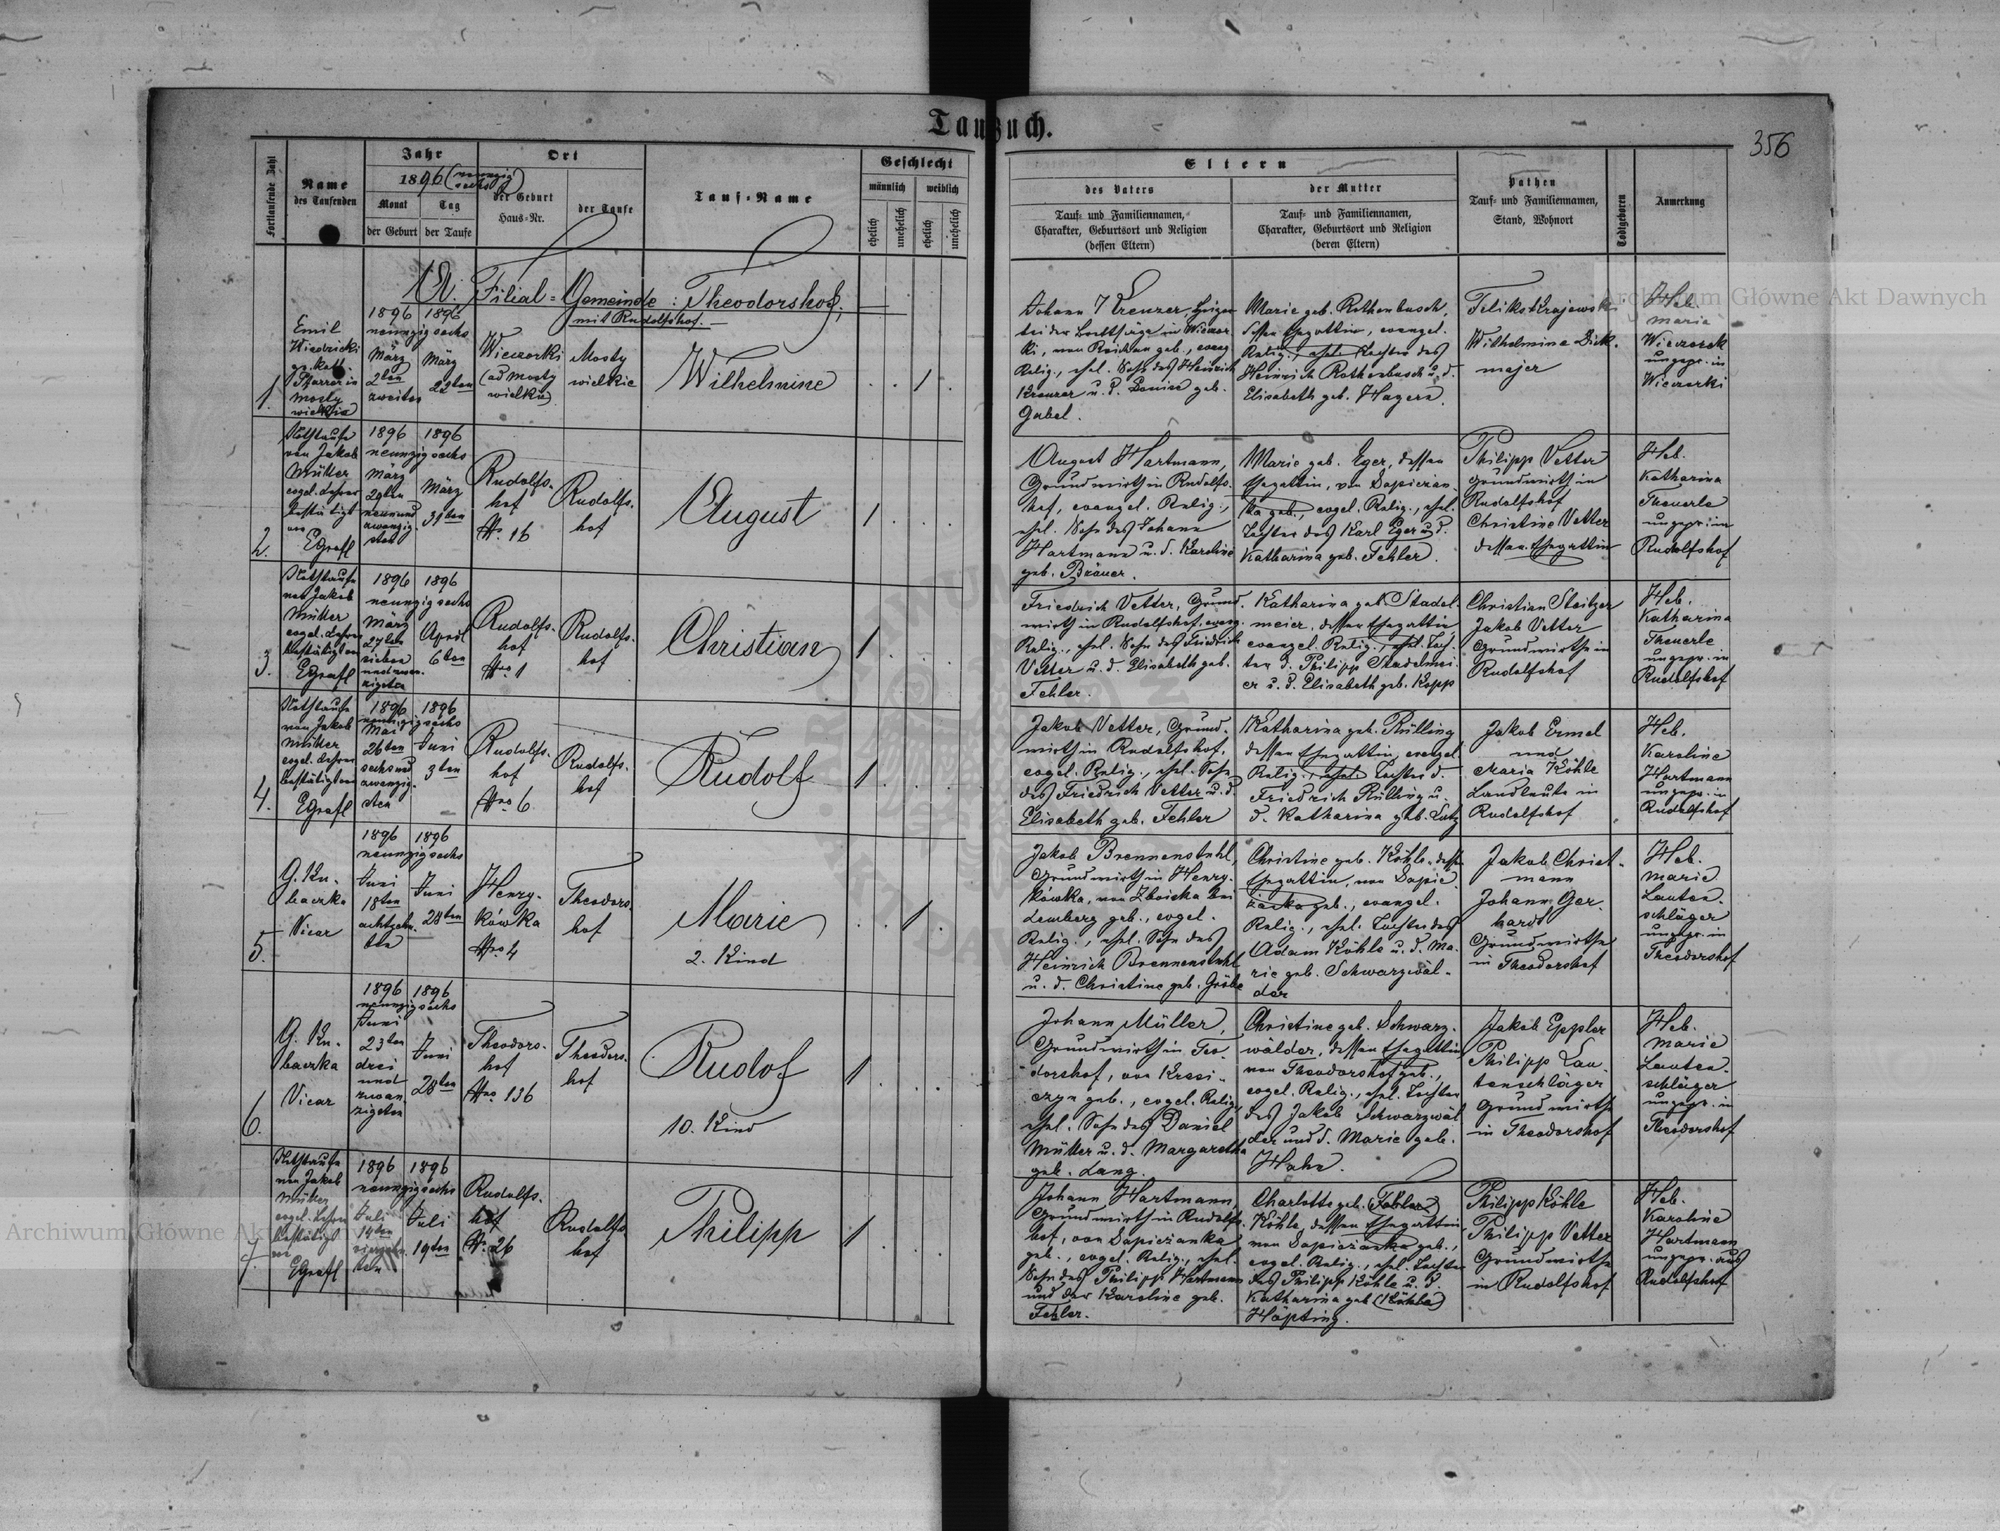 Taufbuch.
356
Fortlaufende Zahl
Name
des Taufenden
Jahr
1896 (neunzig
sechs)
Monat
der Geburt
Tag
der Taufe
Ort
der Geburt
Haus-Nr.
der Taufe
Tauf-Name
Geschlecht
männlich
weiblich
ehelich
unehelich
ehelich
unehelich
Eltern
des Vaters
Tauf- und Familiennamen,
Charakter, Geburtsort und Religion
(dessen Eltern)
der Mutter
Tauf- und Familiennamen,
Charakter, Geburtsort und Religion
(deren Eltern)
Pathen
Tauf- und Familiennamen,
Stand, Wohnort
Todtgeboren
Anmerkung
Filial-Gemeinde: Theodorshof,
mit Rudolfshof.
1.
Emil
Pfarrer in
Mosty
wielkie
1896 1896
neunzig sechs
März
2ten
zweiten
März
22ten
Wieczorki
(ad Mosty
wielkie)
Mosty
wielkie
Wilhelmine
1
Johann Kreuzer,
bei der Brettsäge in Wieczor
ki, von Reichau geb., evang
Relig., ehel. Sohn des Heinrich
Kreuzer u. d. Louise geb.
Gabel.
Marie geb. Rothenbusch,
dessen Ehegattin, evangel.
Relig., ehel. Tochter des
Heinrich Rothenbusch u. d.
Elisabeth geb. Hagere.
Feliks Krajewski
Wilhelmine Dick-
majer
Heb.
Maria
Wieczorek
ungepr. in
Wieczorki
2.
Nothtaufe
von Jakob
Müller
evgel. Lehrer
bestätigt
von
EGrafl
1896 1896
neunzig sechs
März
29ten
neunund
zwanzig
sten
März
31ten
Rudolfs-
hof
No. 16
Rudolfs-
hof
August
1
August Hartmann,
Grundwirth in Rudolfs-
hof, evangel. Relig.,
ehel. Sohn des Johann
Hartmann u. d. Karoline
geb. Bräuer.
Marie geb. Eger, dessen
Ehegattin, von Sapiezan-
ka geb., evgel. Relig., ehel.
Tochter des Karl Eger u. d.
Katharina geb. Fehler.
Philipp Vetter
Grundwirth in
Rudolfshof
Christine Vetter
dessen Ehegattin
Heb.
Katharina
Theuerle
ungepr. in
Rudolfshof
3
Nothtaufe
von Jakob
Müller
evgel. Lehrer
bestätigt von
EGrafl
1896 1896
neunzig sechs
März
27ten
sieben
und zwan-
zigsten
April
6ten
Rudolfs-
hof
Nro 1
Rudolfs-
hof
Christian
1
Friedrich Vetter, Grund-
wirth in Rudolfshof, evang.
Relig., ehel. Sohn des Friedrich
Vetter u. d. Elisabeth geb.
Fehler.
Katharina geb. Stadel-
meier, dessen Ehegattin
evangel. Relig., ehel. Toch-
ter d. Philipp Stadelmei-
er u. d. Elisabeth geb. Kopp
Christian Steitzer
Jakob Vetter
Grundwirthe in
Rudolfshof
Heb.
Katharina
Theuerle
ungepr. in
Rudolfshof
4.
Nothtaufe
von Jakob
Müller
evgel. Lehrer
bestätigt von
EGrafl
1896 1896
neunzig sechs
Mai
26ten
sechsund
zwanzig-
sten
Juni
3ten
Rudolfs-
hof
Nro 6
Rudolfs-
hof
Rudolf
1
Jakob Vetter, Grund-
wirth in Rudolfshof,
evgel. Relig., ehel. Sohn
des Friedrich Vetter u. d.
Elisabeth geb. Fehler
Katharina geb. Rülling
dessen Ehegattin, evangel
Relig., ehel. Tochter d.
Friedrich Rülling u.
d. Katharina geb. Lutz
Jakob Ermel
und
Maria Köhle
Landleute in
Rudolfshof
Heb.
Karoline
Hartmann
ungepr. in
Rudolfshof
5.
G. Ku-
baczka
Vicar
1896 1896
neunzig sechs
Juni
18ten
achtzehn-
ten
Juni
28ten
Henry-
kówka
Nro 4
Theodors-
hof
Marie
2. Kind
1
Jakob Brennenstuhl,
Grundwirth in Henry-
kówka, von Zboiska bei
Lemberg geb., evgel.
Relig., ehel. Sohn des
Heinrich Brennenstuhl
u. d. Christine geb. Gröbe
Christine geb. Köhle, dess.
Ehegattin, von Sapie-
żanka geb., evangel.
Relig., ehel. Tochter des
Adam Köhle u. d. Ma-
rie geb. Schwarzwäl-
der
Jakob Christ-
mann
Johann Ger-
hard
Grundwirthe
in Theodorshof
Heb.
Marie
Lauten-
schläger
ungepr. in
Theodorshof
6.
G. Ku-
baczka
Vicar
1896 1896
neunzig sechs
Juni
23ten
drei
und
zwan-
zigsten
Juni
28ten
Theodors-
hof
Nro 136
Theodors-
hof
Rudof
10. Kind
1
Johann Müller,
Grundwirth in Teo-
dorshof, von Kresi-
czyn geb., evgel. Relig.
ehel. Sohn des Daniel
Müller u. d. Margaretha
geb. Lang.
Christine geb. Schwarz-
wälder, dessen Ehegattin
von Theodorshof geb.,
evgel. Relig., ehel. Tochter
des Jakob Schwarzwäl
der und d. Marie geb.
Hahn.
Jakob Eppler
Philipp Lau-
tenschläger
Grundwirthe
in Theodorshof
Heb.
Marie
Lauten-
schläger
ungepr. in
Theodorshof
7.
Nothtaufe
von Jakob
Müller
evgel. Lehrer
bestätigt
von
EGrafl
1896 1896
neunzig sechs
Juli
14ten
vierzehn
ten
Juli
19ten
Rudolfs-
hof
No. 26
Rudolfs
hof
Philipp
1
Johann Hartmann,
Grundwirth in Rudolfs-
hof, von Sapieżanka
geb., evgel. Relig., ehel.
Sohn des Philipp Hartmann
und der Karoline geb.
Fehler.
Charlotte geb. (Fehler)
Köhle, dessen Ehegattin
von Sapieżanka geb.,
evgel. Relig., ehel. Tochter
des Philipp Köhle u. d.
Katharina geb (Köhle)
Häpting.
Philipp Köhle
Philipp Vetter
Grundwirthe
in Rudolfshof
Heb.
Karoline
Hartmann
ungepr. aus
Rudolfshof
Archiwum Główne Akt Dawnych
Archiwum Główne Ak